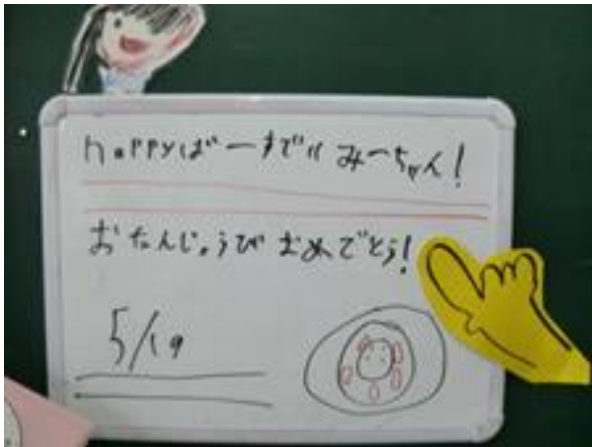 happyばーすでい みーちゃん!
おたんじょうび おめでとう!
5/19